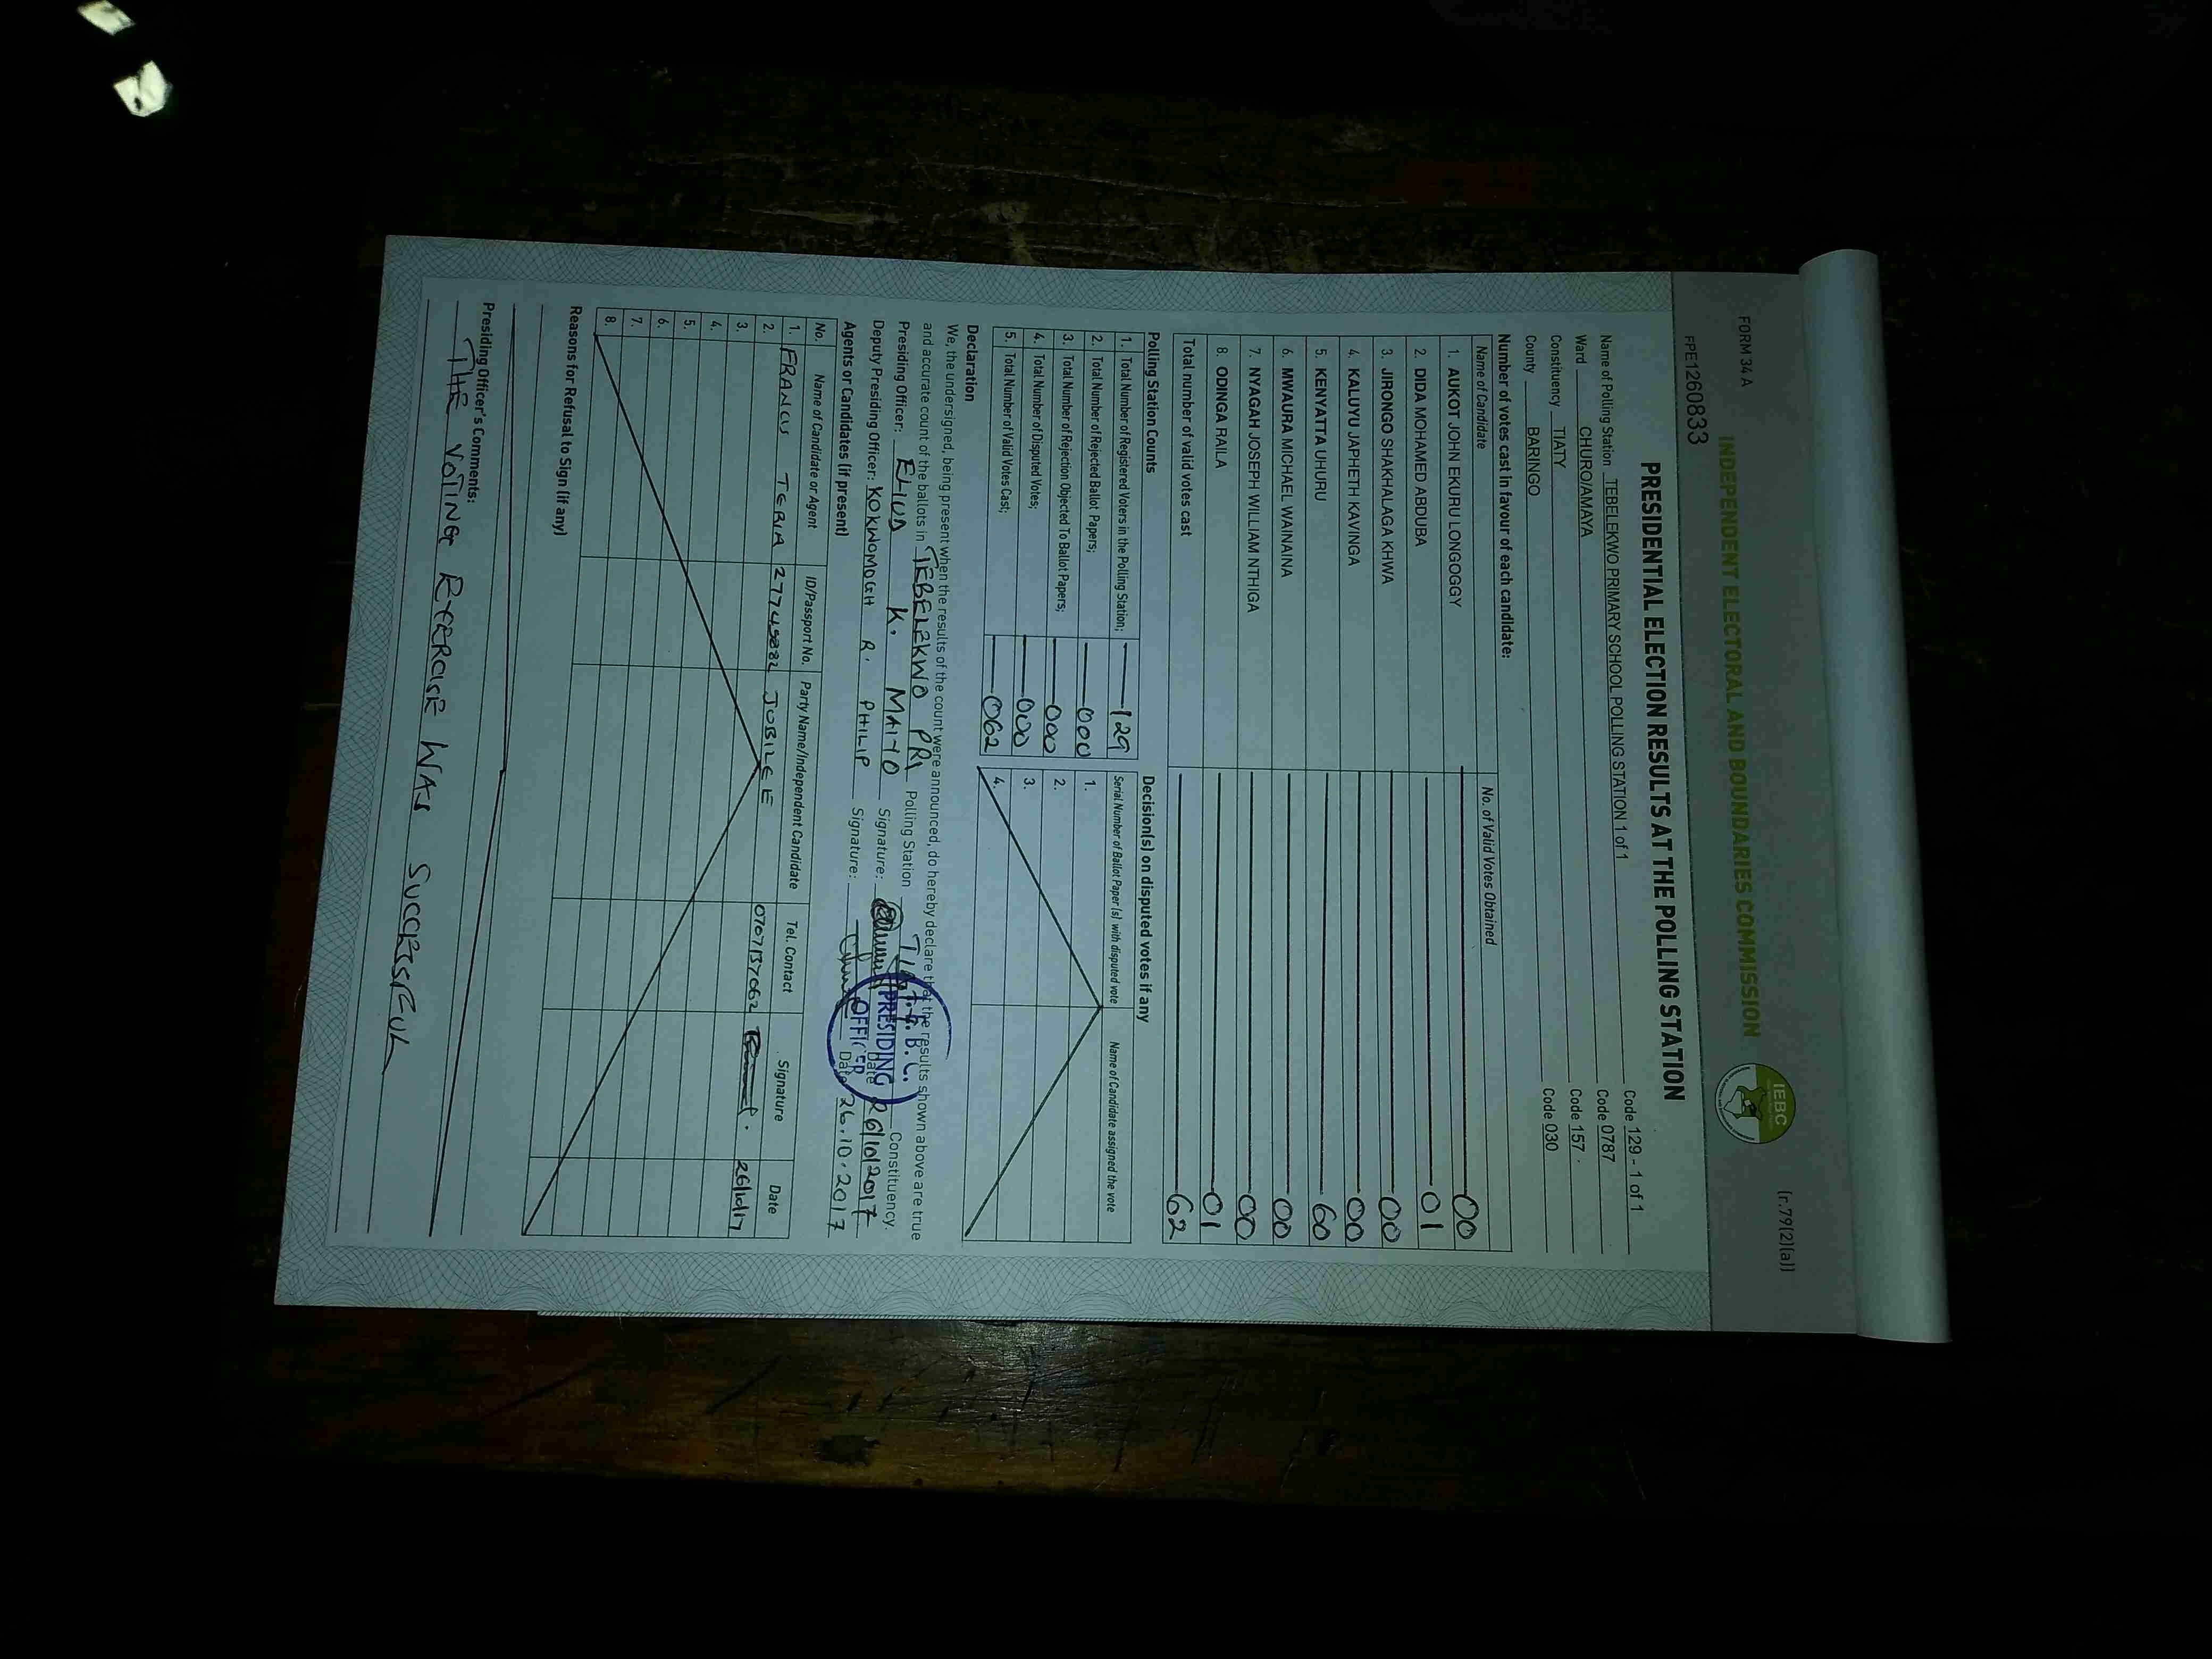 FORM 34 A
(r.79(2)(a))
INDEPENDENT ELECTORAL AND BOUNDARIES COMMISSION
IEBC
FPE1260833
PRESIDENTIAL ELECTION RESULTS AT THE POLLING STATION
Name of Polling Station TEBELEKWO PRIMARY SCHOOL POLLING STATION 1 of 1 Code 129 - 1 of 1
Ward CHURO/AMAYA Code 0787
Constituency TIATY Code 157
County BARINGO Code 030
Number of votes cast in favour of each candidate:
Name of Candidate No. of Valid Votes Obtained
1. AUKOT JOHN EKURU LONGOGGY 00
2. DIDA MOHAMED ABDUBA 01
3. JIRONGO SHAKHALAGA KHWA 00
4. KALUYU JAPHETH KAVINGA 00
5. KENYATTA UHURU 60
6. MWAURA MICHAEL WAINAINA 00
7. NYAGAH JOSEPH WILLIAM NTHIGA 00
8. ODINGA RAILA 01
Total number of valid votes cast 62
Polling Station Counts
1. Total Number of Registered Voters in the Polling Station; 129
2. Total Number of Rejected Ballot Papers; 000
3. Total Number of Rejection Objected To Ballot Papers; 000
4. Total Number of Disputed Votes; 000
5. Total Number of Valid Votes Cast; 062
Decision(s) on disputed votes if any
Serial Number of Ballot Paper (s) with disputed vote Name of Candidate assigned the vote
1.
2.
3.
4.
Declaration
We, the undersigned, being present when the results of the count were announced, do hereby declare that the results shown above are true
and accurate count of the ballots in TEBELEKWO PRI Polling Station Constituency.
Presiding Officer: ELIUD K. Signature: Date 26/10/2017
Deputy Presiding Officer: KOKWOMOGH R. PHILIP Signature: Date 26.10.2017
I.E.B.C.
PRESIDING
OFFICER
Agents or Candidates (if present)
No. Name of Candidate or Agent ID/Passport No. Party Name/Independent Candidate Tel. Contact Signature Date
1. FRANCIS TERIA JUBILEE 0707137062 26/10/17
2.
3.
4.
5.
6.
7.
8.
Reasons for Refusal to Sign (if any)
Presiding Officer's Comments:
THE VOTING EXERCISE WAS SUCCESSFUL